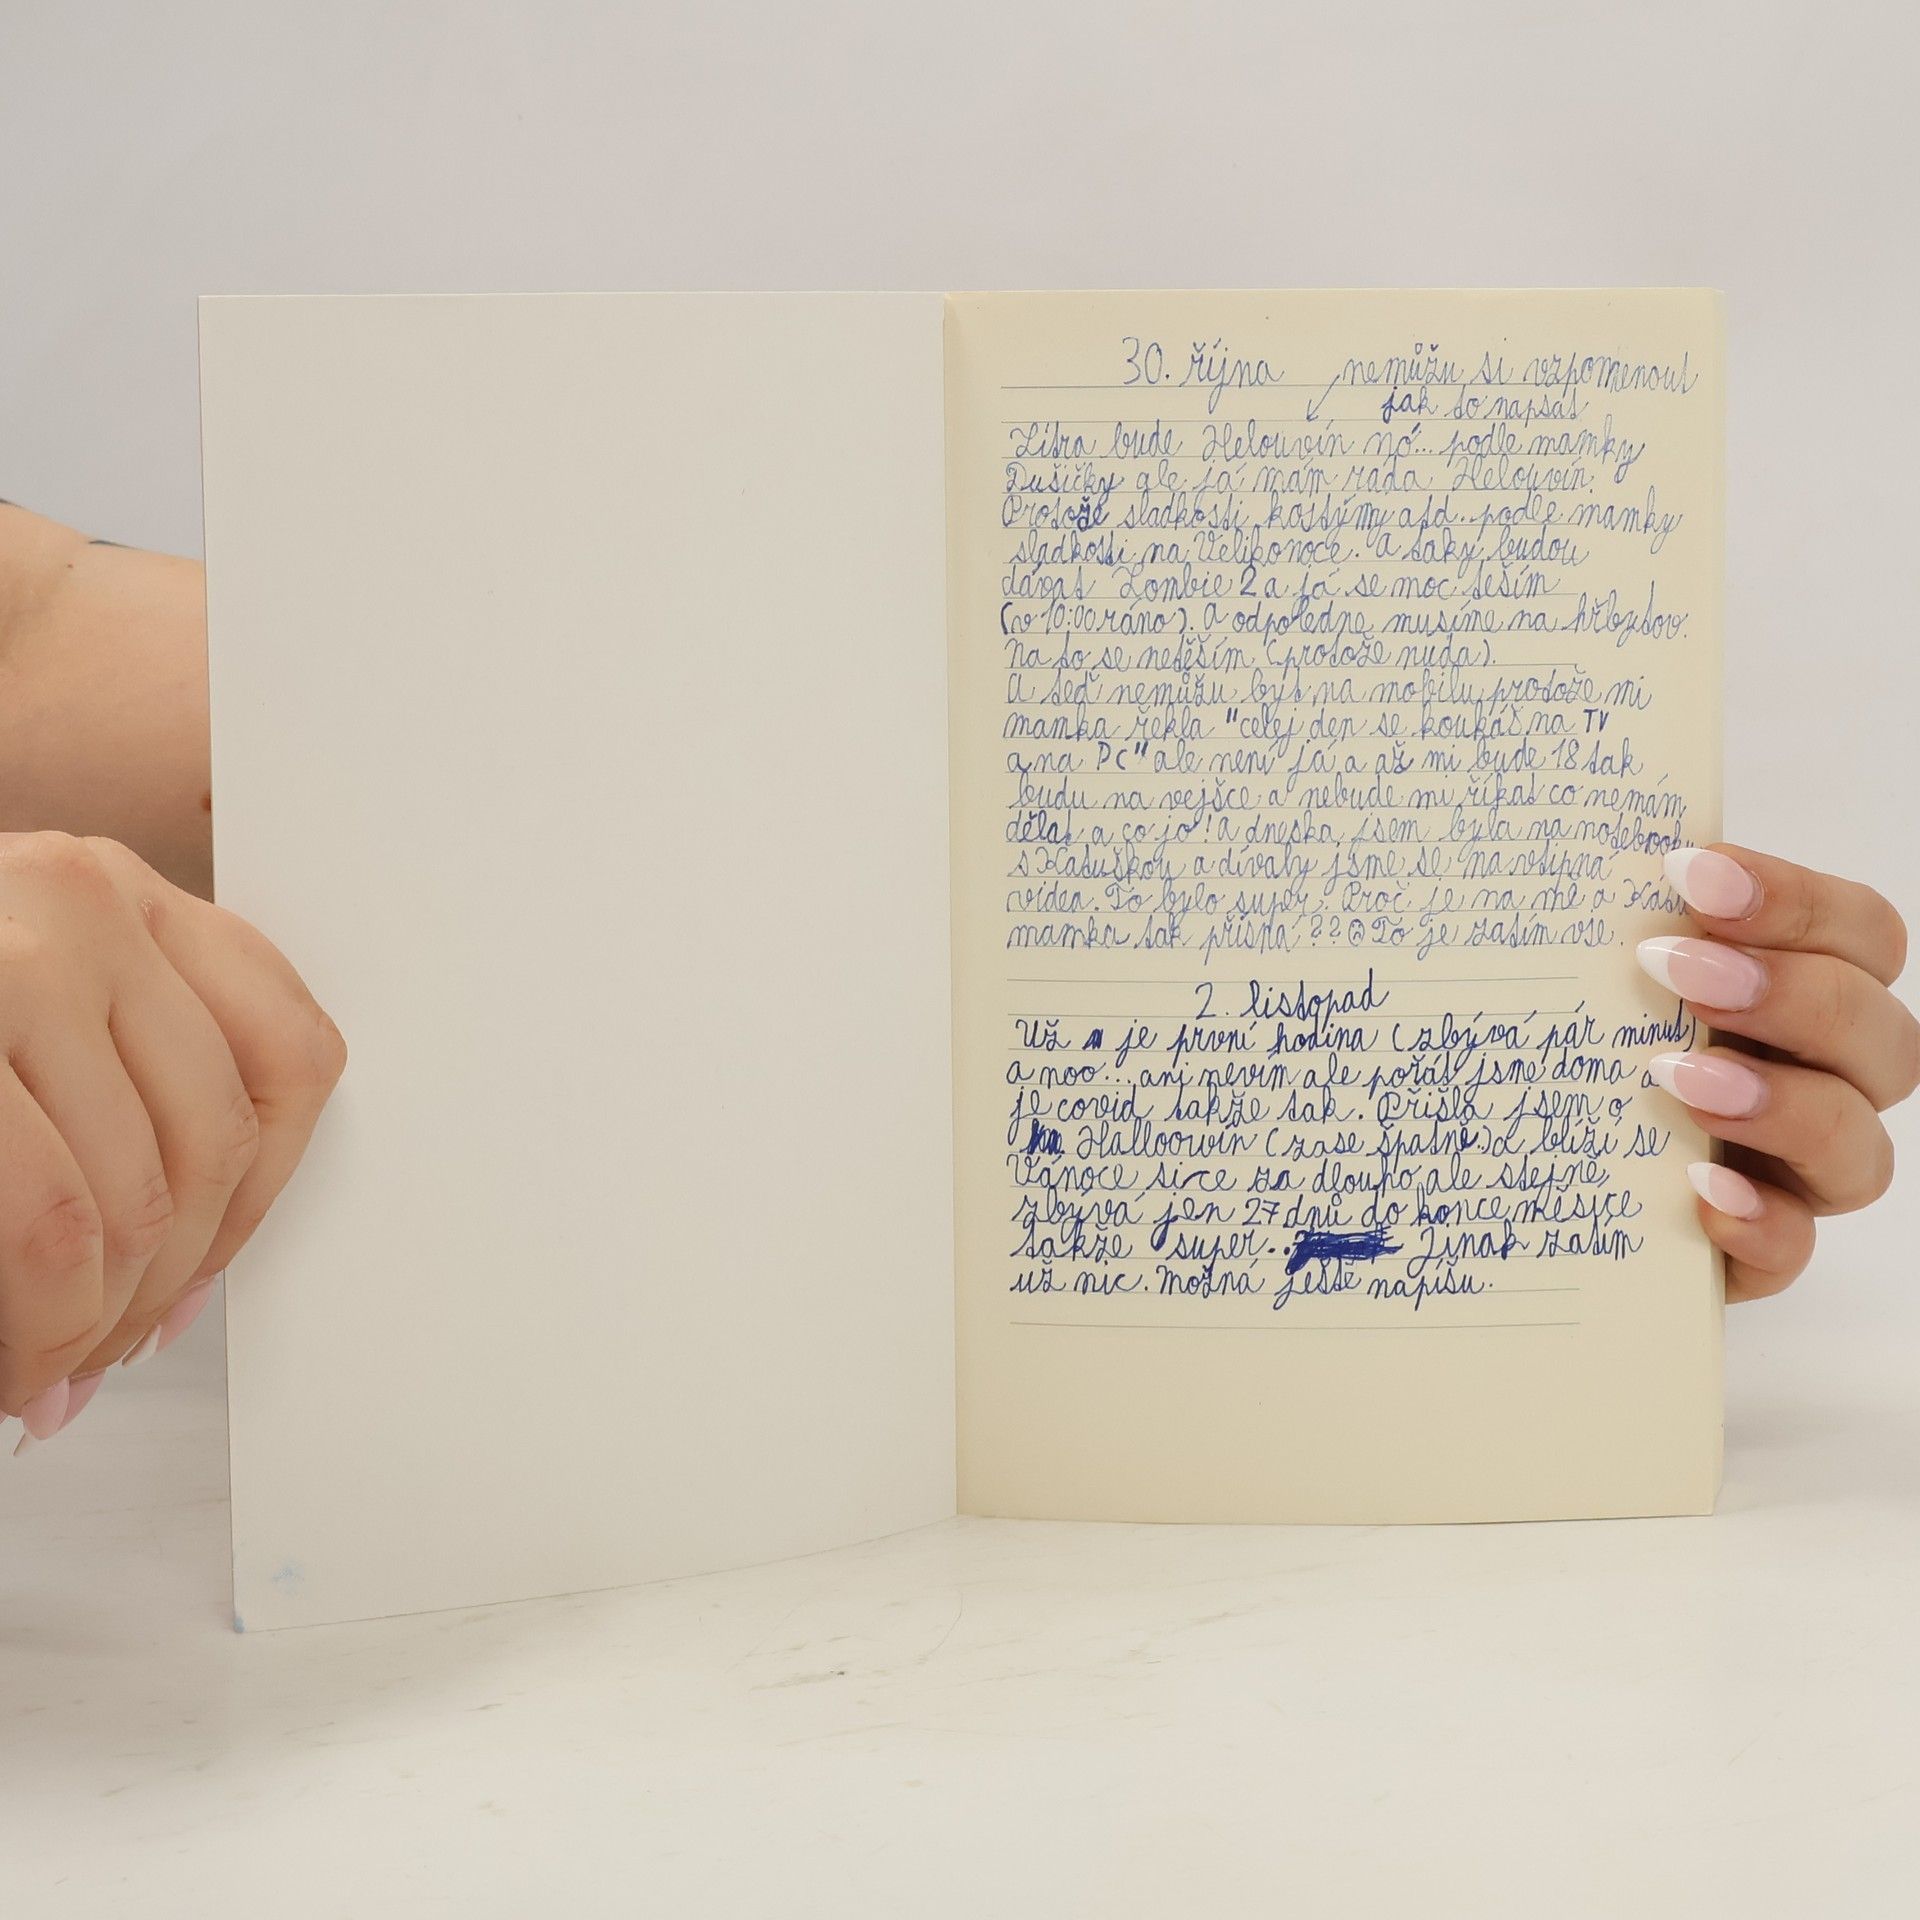 30. října nemůžu si vzpomenout
jak to napsat
Zítra bude Helouvín nó... podle mamky
Dušičky ale já mám ráda Helouvín.
Protože sladkosti, kostýmy atd.. podle mamky
sladkosti na Velikonoce. A taky budou
dávat Zombie 2 a já se moc těším
(v 10:00 ráno). A odpoledne musíme na hřbytov.
Na to se netěším (protože nuda).
A teď nemůžu být na mobilu protože mi
mamka řekla "celej den se koukáš na TV
a na PC" ale není já a až mi bude 18 tak
budu na vejšce a nebude mi říkat co nemám
dělat a co jo! A dneska jsem byla na notebooku
s Katuškou a dívaly jsme se na vtipná
videa. To bylo super. Proč je na mě a Káťu
mamka tak přísná ?? ☹ To je zatím vše.
2. listopad
Už je první hodina (zbývá pár minut)
a noo... ani nevím ale pořát jsme doma a
je covid takže tak. Přišla jsem o
Halloowín (zase špatně.) a blíží se
Vánoce sice za dlouho ale stejně,
zbývá jen 27 dnů do konce měsíce
takže super.. Jinak zatím
už nic. Možná ještě napíšu.